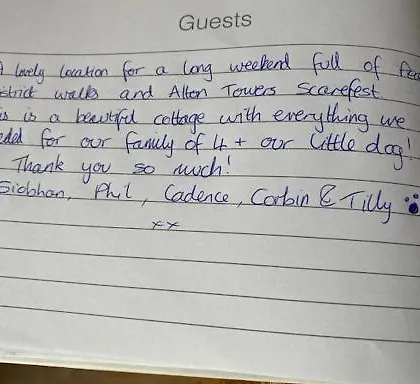 Guests
A lovely location for a long weekend full of
walks and Alton Towers Scarefest
is a beautiful cottage with everything we
for our family of 4 + our little dog!
Thank you so much!
Siobhan, Phil, Cadence, Corbin & Tilly
xx